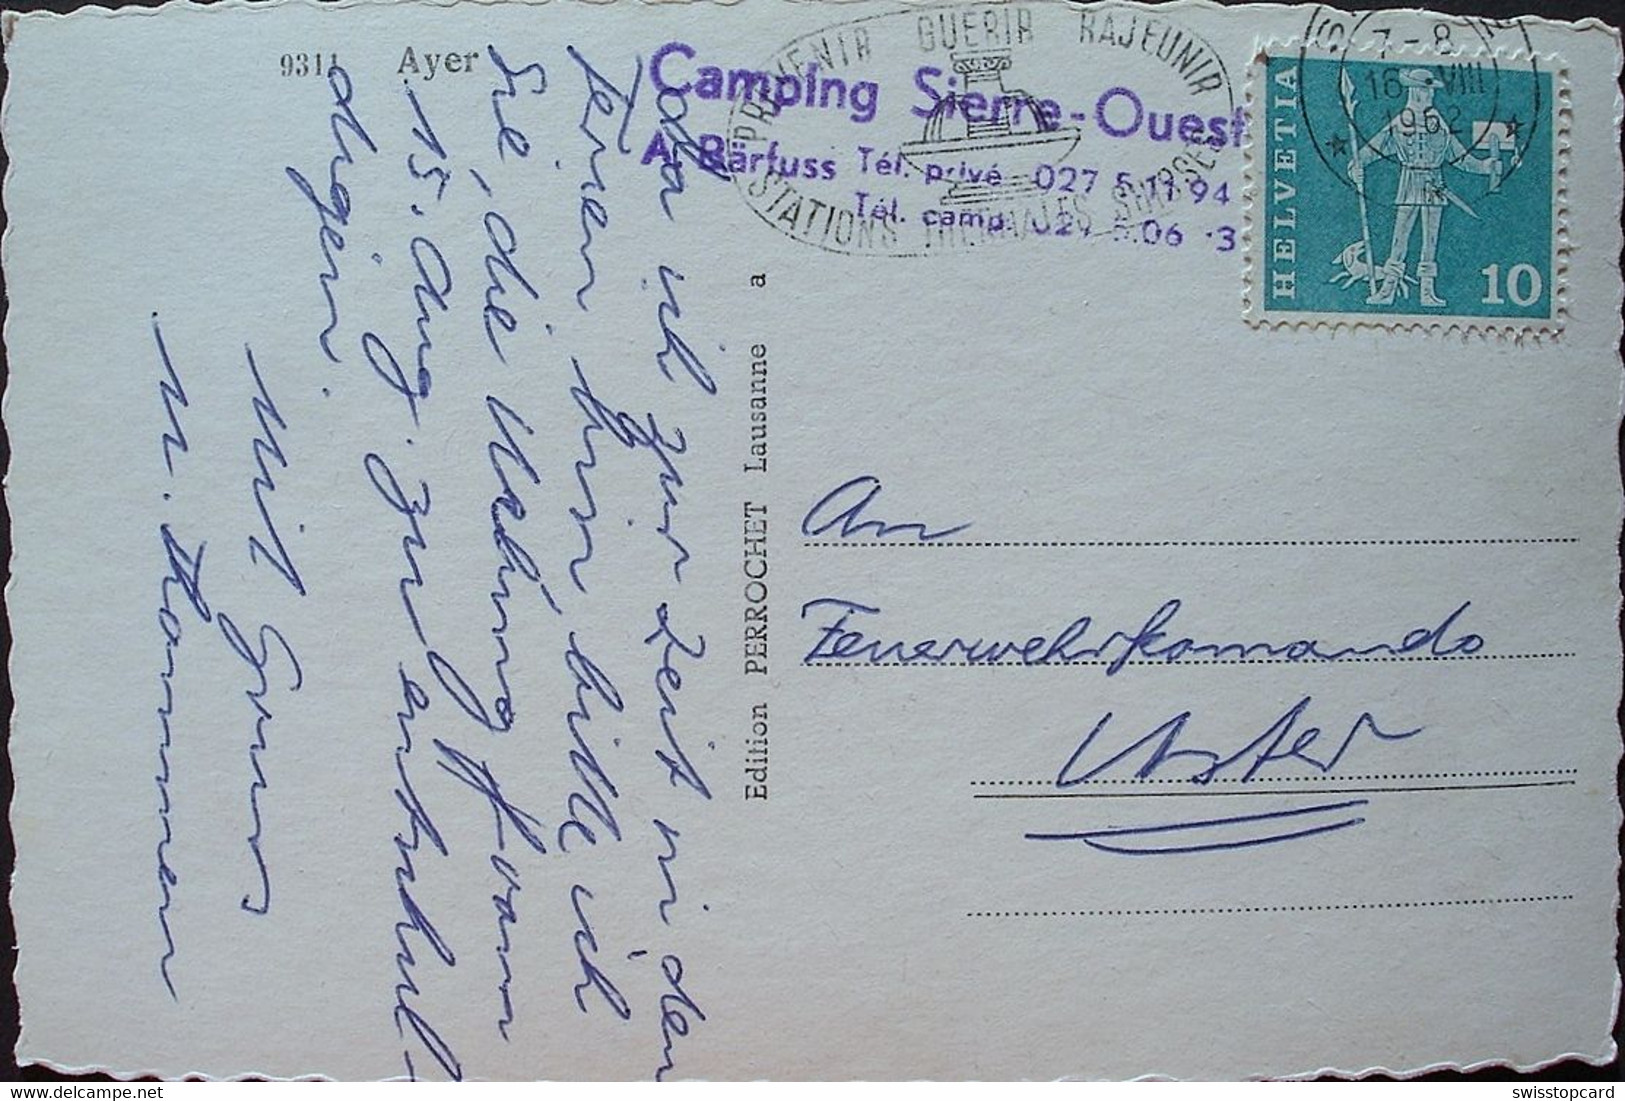 9311 Ayer
Da ich zur Zeit in den
Ferien bin, bitte ich
Sie, die Uebung II vom
15. Aug. zu entschul-
digen.
Mit Gruss
W. Hammer
Edition PERROCHET Lausanne a
Camping Sierre-Ouest
A. Bärfuss Tél. privé 027 5 11 94
Tél. camp. 027 5 06 3
PREVENIR GUERIR RAJEUNIR
STATIONS THERMALES SUISSES
7-8
16 VIII
1962
HELVETIA
10
An
Feuerwehrkomando
Uster
swisstopcard